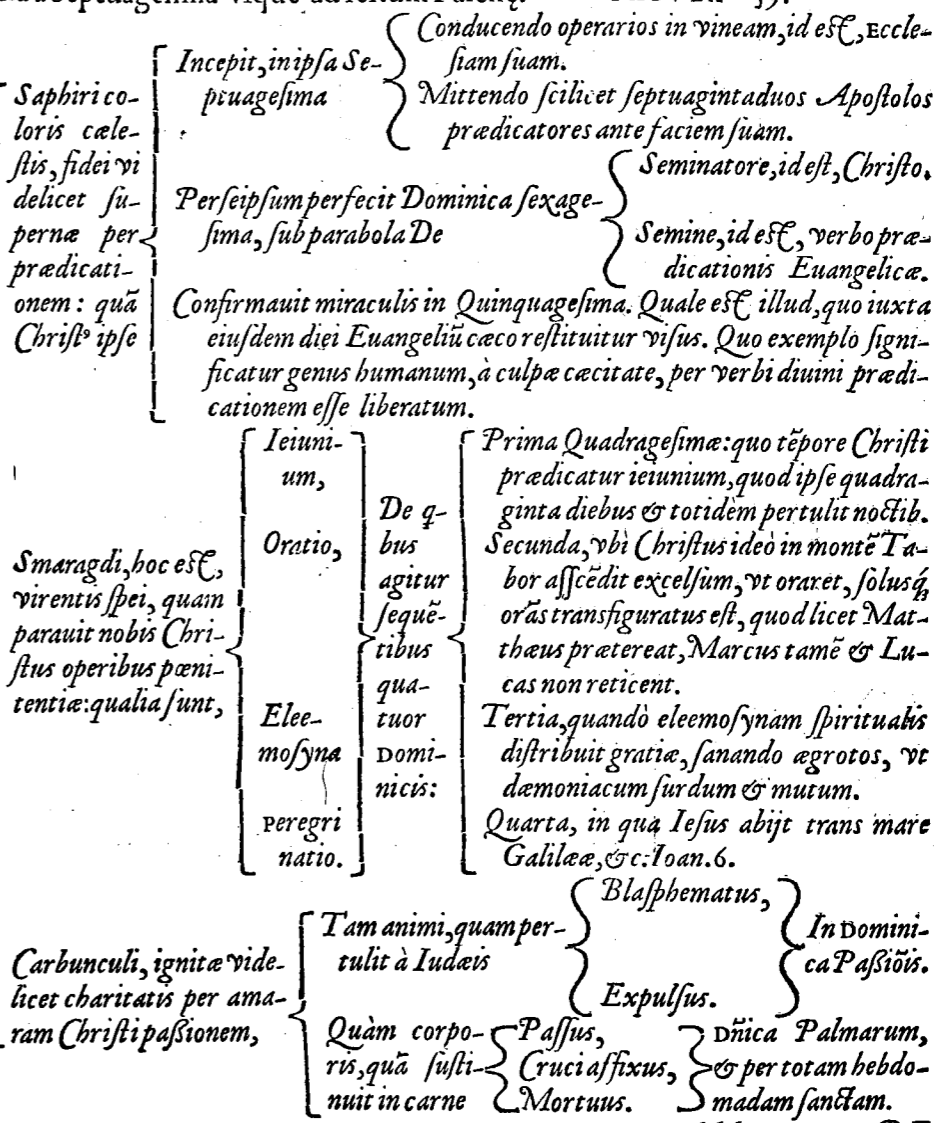 Saphiri co-
loris cæle-
stis, fidei vi
delicet su-
pernæ per
prædicati-
onem: quã
Christꝰ ipse
Incepit, in ipsa Se-
ptuagesima
Conducendo operarios in vineam, id est, Eccle-
siam suam.
Mittendo scilicet septuaginta duos Apostolos
prædicatores ante faciem suam.
Per seipsum perfecit Dominica sexage-
sima, sub parabola De
Seminatore, id est, Christo.
Semine, id est, verbo præ-
dicationis Euangelicæ.
Confirmauit miraculis in Quinquagesima. Quale est illud, quo iuxta
eiusdem diei Euangeliũ cæco restituitur visus. Quo exemplo signi-
ficatur genus humanum, à culpæ cæcitate, per verbi diuini prædi-
cationem esse liberatum.
Smaragdi, hoc est,
virentis spei, quam
parauit nobis Chri-
stus operibus pœni-
tentiæ: qualia sunt,
Ieiuni-
um,
Oratio,
Elee-
mosyna
Peregri
natio.
De q-
bus
agitur
sequẽ-
tibus
qua-
tuor
Domi-
nicis:
Prima Quadragesimæ: quo tẽpore Christi
prædicatur ieiunium, quod ipse quadra-
ginta diebus & totidèm pertulit noctib.
Secunda, vbì Christus ideò in montẽ Ta-
bor asscẽdit excelsum, vt oraret, solusq́ꝫ
orãs transfiguratus est, quod licet Mat-
thæus prætereat, Marcus tamẽ & Lu-
cas non reticent.
Tertia, quandò eleemosynam spiritualis
distribuit gratiæ, sanando ægrotos, vt
dæmoniacum surdum & mutum.
Quarta, in qua Iesus abijt trans mare
Galilææ, &c: Ioan. 6.
Carbunculi, ignitæ vide-
licet charitatis per ama-
ram Christi passionem,
Tam animi, quam per-
tulit à Iudæis
Blasphematus,
Expulsus.
In Domini-
ca Passiõis.
Quàm corpo-
ris, quã susti-
nuit in carne
Passus,
Cruci affixus,
Mortuus.
Dñica Palmarum,
& per totam hebdo-
madam sanctam.